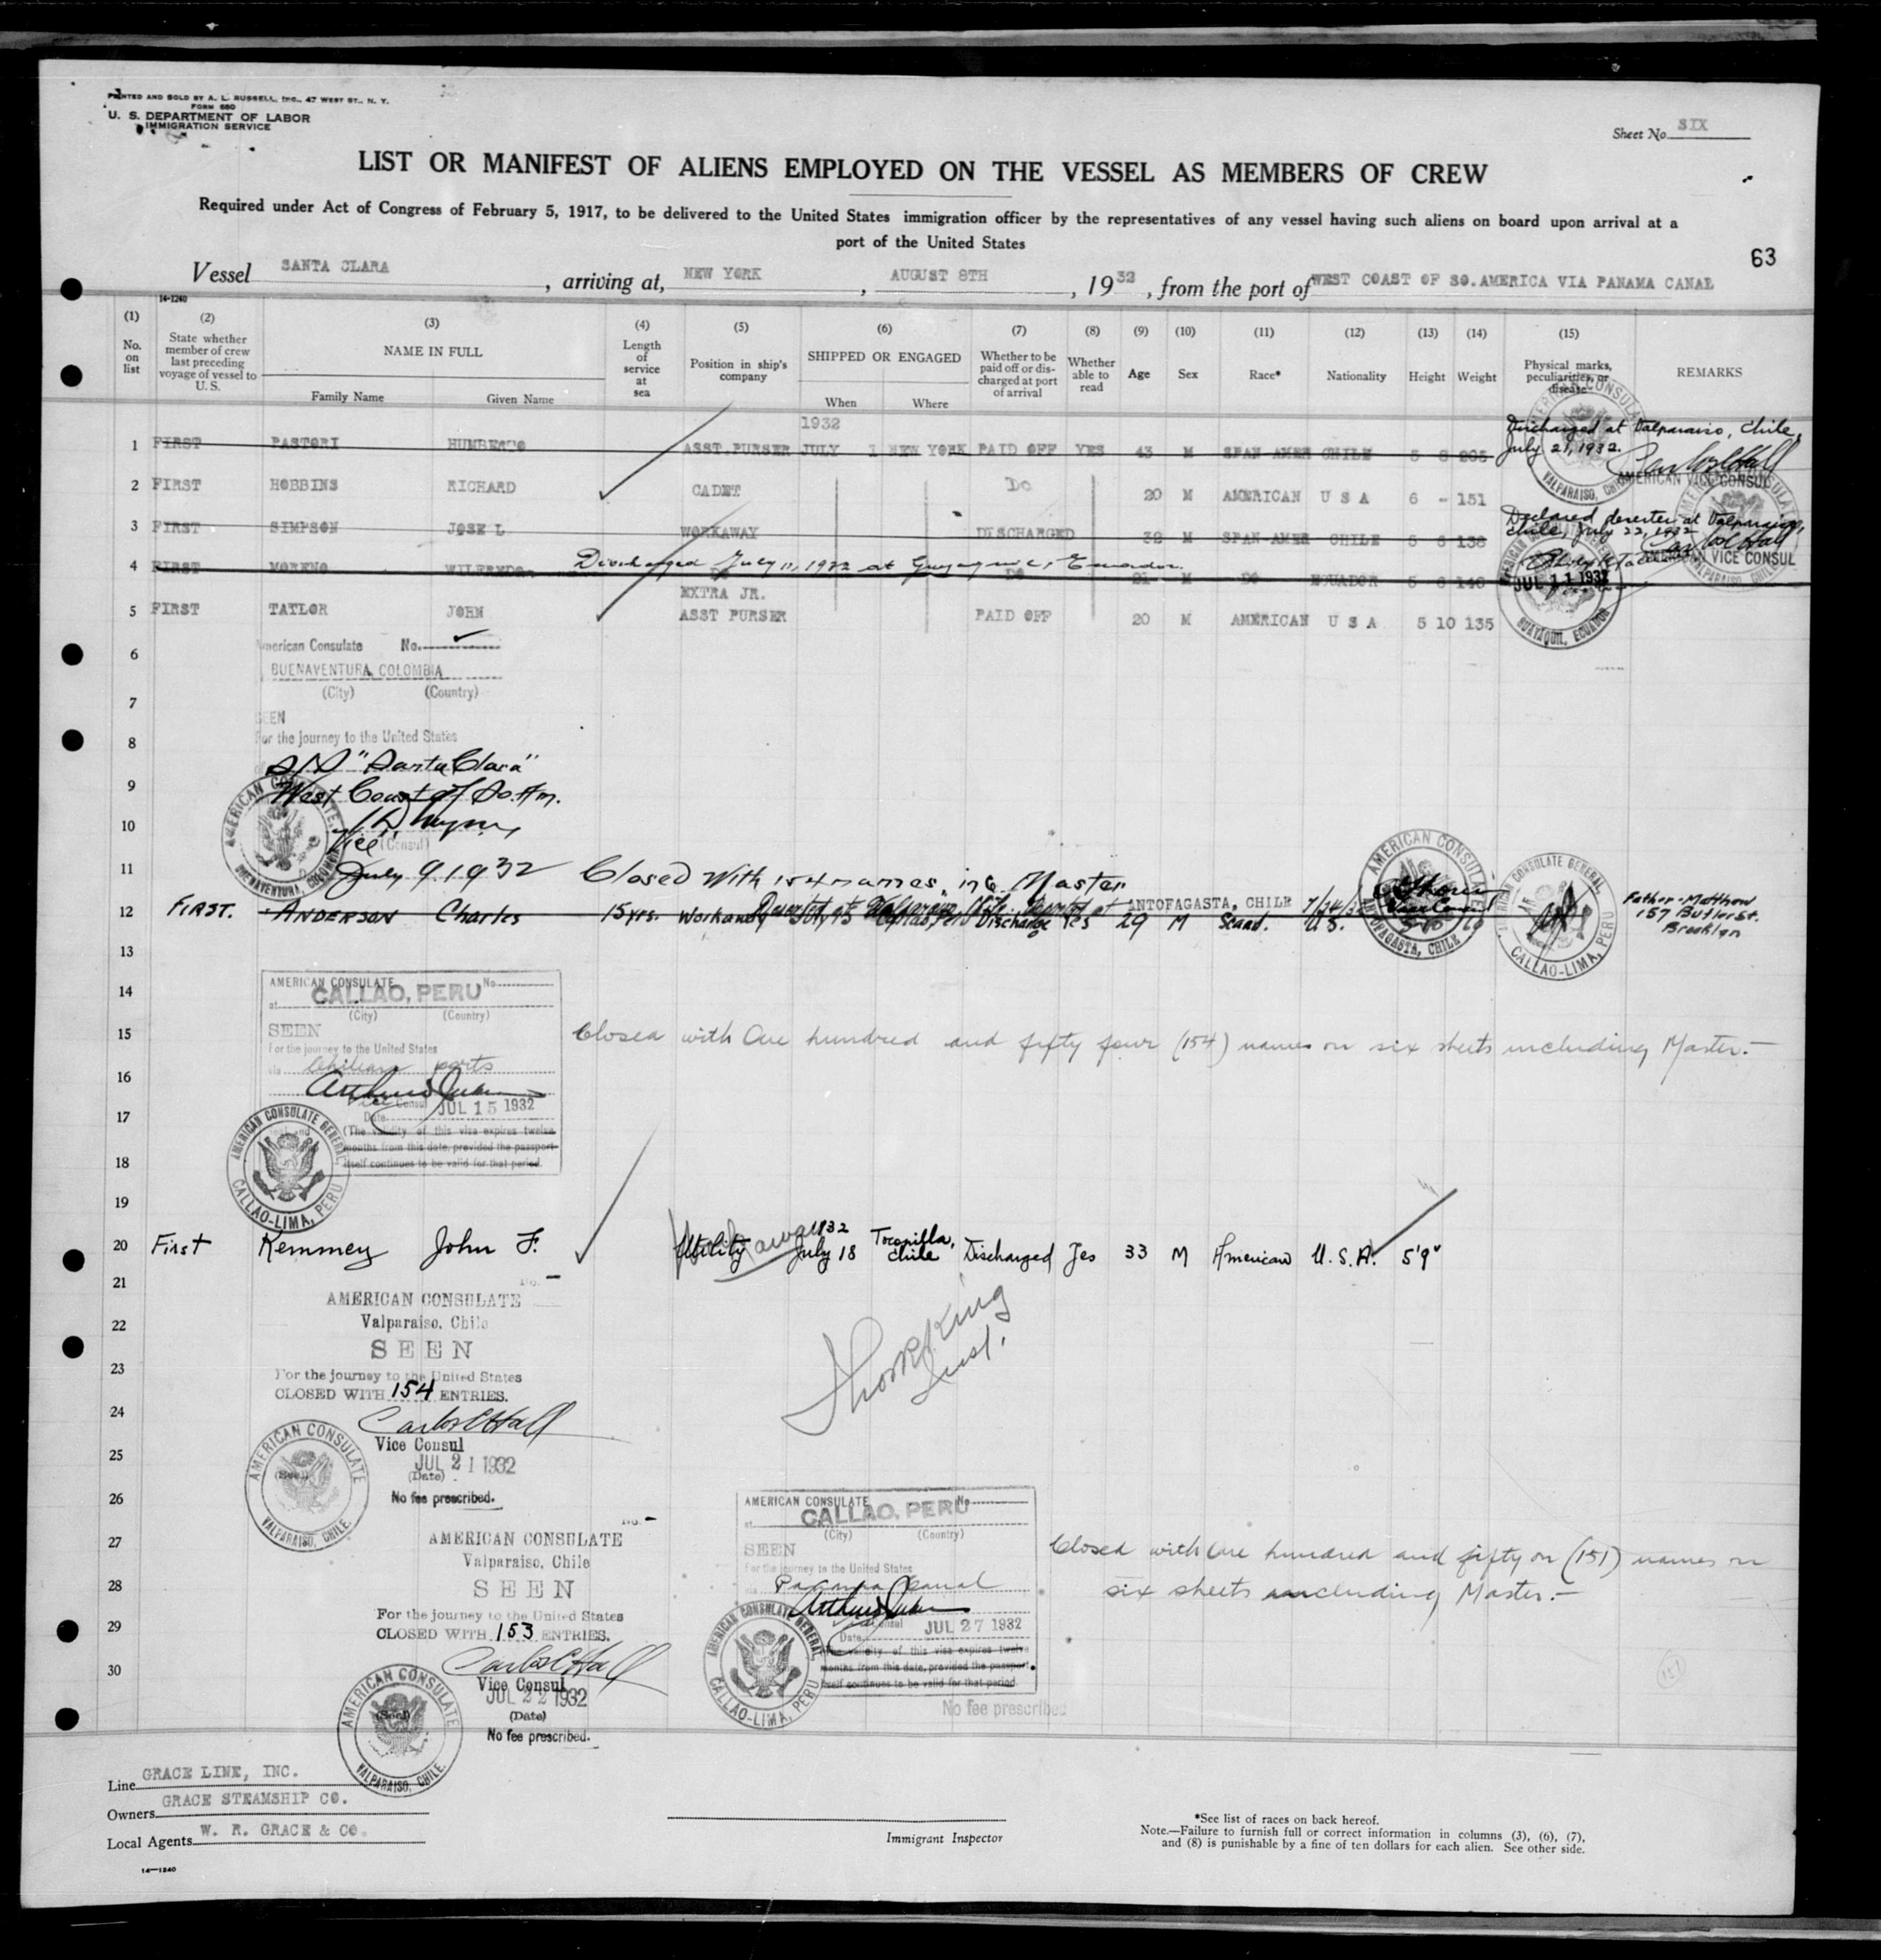 PRINTED AND SOLD BY A. L. RUSSELL, INC., 47 WEST ST., N. Y.
FORM 680
U. S. DEPARTMENT OF LABOR
IMMIGRATION SERVICE
Sheet No. SIX
LIST OR MANIFEST OF ALIENS EMPLOYED ON THE VESSEL AS MEMBERS OF CREW
Required under Act of Congress of February 5, 1917, to be delivered to the United States immigration officer by the representatives of any vessel having such aliens on board upon arrival at a
port of the United States
63
Vessel SANTA CLARA, arriving at, NEW YORK, AUGUST 8TH, 1932, from the port of WEST COAST OF SO.AMERICA VIA PANAMA CANAL
14-1240
(1) No. on list
(2) State whether member of crew last preceding voyage of vessel to U. S.
(3) NAME IN FULL Family Name Given Name
(4) Length of service at sea
(5) Position in ship's company
(6) SHIPPED OR ENGAGED When Where
(7) Whether to be paid off or discharged at port of arrival
(8) Whether able to read
(9) Age
(10) Sex
(11) Race*
(12) Nationality
(13) Height
(14) Weight
(15) Physical marks, peculiarities, or disease
REMARKS
1932
1 FIRST PASTORI HUMBERTO ASST.PURSER JULY 1 NEW YORK PAID OFF YES 43 M SPAN AMER CHILE 5 8 205
Discharged at Valparaiso, Chile, July 21, 1932.
Carlos C Hall
AMERICAN VICE CONSUL
2 FIRST HOBBINS RICHARD CADET Do 20 M AMERICAN U S A 6 - 151
3 FIRST SIMPSON JOSE L WORKAWAY DISCHARGED 32 M SPAN-AMER CHILE 5 6 138
Declared deserter at Valparaiso, Chile, July 22, 1932
Carlos C Hall
AMERICAN VICE CONSUL
4 FIRST MORENO WILFREDO Do Do 21 M Do ECUADOR 5 6 140
Discharged July 11, 1932 at Guayaquil, Ecuador.
JUL 11 1932
GUAYAQUIL, ECUADOR
EXTRA JR.
5 FIRST TAYLOR JOHN ASST PURSER PAID OFF 20 M AMERICAN U S A 5 10 135
6
American Consulate No.
BUENAVENTURA, COLOMBIA
(City) (Country)
7
SEEN
For the journey to the United States
8
S/S "Santa Clara"
9
West Coast of So. Am.
10
Vice (Consul)
AMERICAN CONSULATE, BUENAVENTURA, COLOMBIA
11
July 9. 1932 Closed With 154 names, inc. Master
12 FIRST. ANDERSON Charles 15yrs. Workaway Discharge Yes 29 M Scand. U.S.
ANTOFAGASTA, CHILE
AMERICAN CONSULATE ANTOFAGASTA, CHILE
AMERICAN CONSULATE GENERAL CALLAO-LIMA, PERU
Father-Matthew
157 Butler St.
Brooklyn
13
14
AMERICAN CONSULATE No.
at CALLAO, PERU
(City) (Country)
15
SEEN
For the journey to the United States
via Chilean ports
Closed with One hundred and fifty four (154) names on six sheets including Master.-
16
Vice Consul
Date JUL 15 1932
17
(The validity of this visa expires twelve months from this date, provided the passport itself continues to be valid for that period.
AMERICAN CONSULATE GENERAL CALLAO-LIMA, PERU
18
19
20 First Kemmey John F. Utility 1932 July 18 Tocopilla, Chile Discharged Yes 33 M American U. S. A. 5'9"
21
No. -
AMERICAN CONSULATE
22
Valparaiso, Chile
SEEN
23
For the journey to the United States
CLOSED WITH 154 ENTRIES.
24
Carlos C Hall
Vice Consul
25
JUL 21 1932
(Date)
No fee prescribed.
AMERICAN CONSULATE VALPARAISO, CHILE.
(Seal)
26
No. -
AMERICAN CONSULATE
27
Valparaiso, Chile
SEEN
28
For the journey to the United States
29
CLOSED WITH 153 ENTRIES.
Carlos C Hall
30
Vice Consul
JUL 22 1932
(Date)
No fee prescribed.
AMERICAN CONSULATE VALPARAISO, CHILE.
(Seal)
AMERICAN CONSULATE No.
at CALLAO, PERU
(City) (Country)
SEEN
For the journey to the United States
via Panama Canal
Vice Consul
Date JUL 27 1932
(The validity of this visa expires twelve months from this date, provided the passport itself continues to be valid for that period.
No fee prescribed
AMERICAN CONSULATE GENERAL CALLAO-LIMA, PERU
Closed with One hundred and fifty on (151) names on
six sheets including Master.-
151
Line GRACE LINE, INC.
Owners GRACE STEAMSHIP CO.
Local Agents W. R. GRACE & CO.
14-1240
Immigrant Inspector
*See list of races on back hereof.
Note.—Failure to furnish full or correct information in columns (3), (6), (7),
and (8) is punishable by a fine of ten dollars for each alien. See other side.